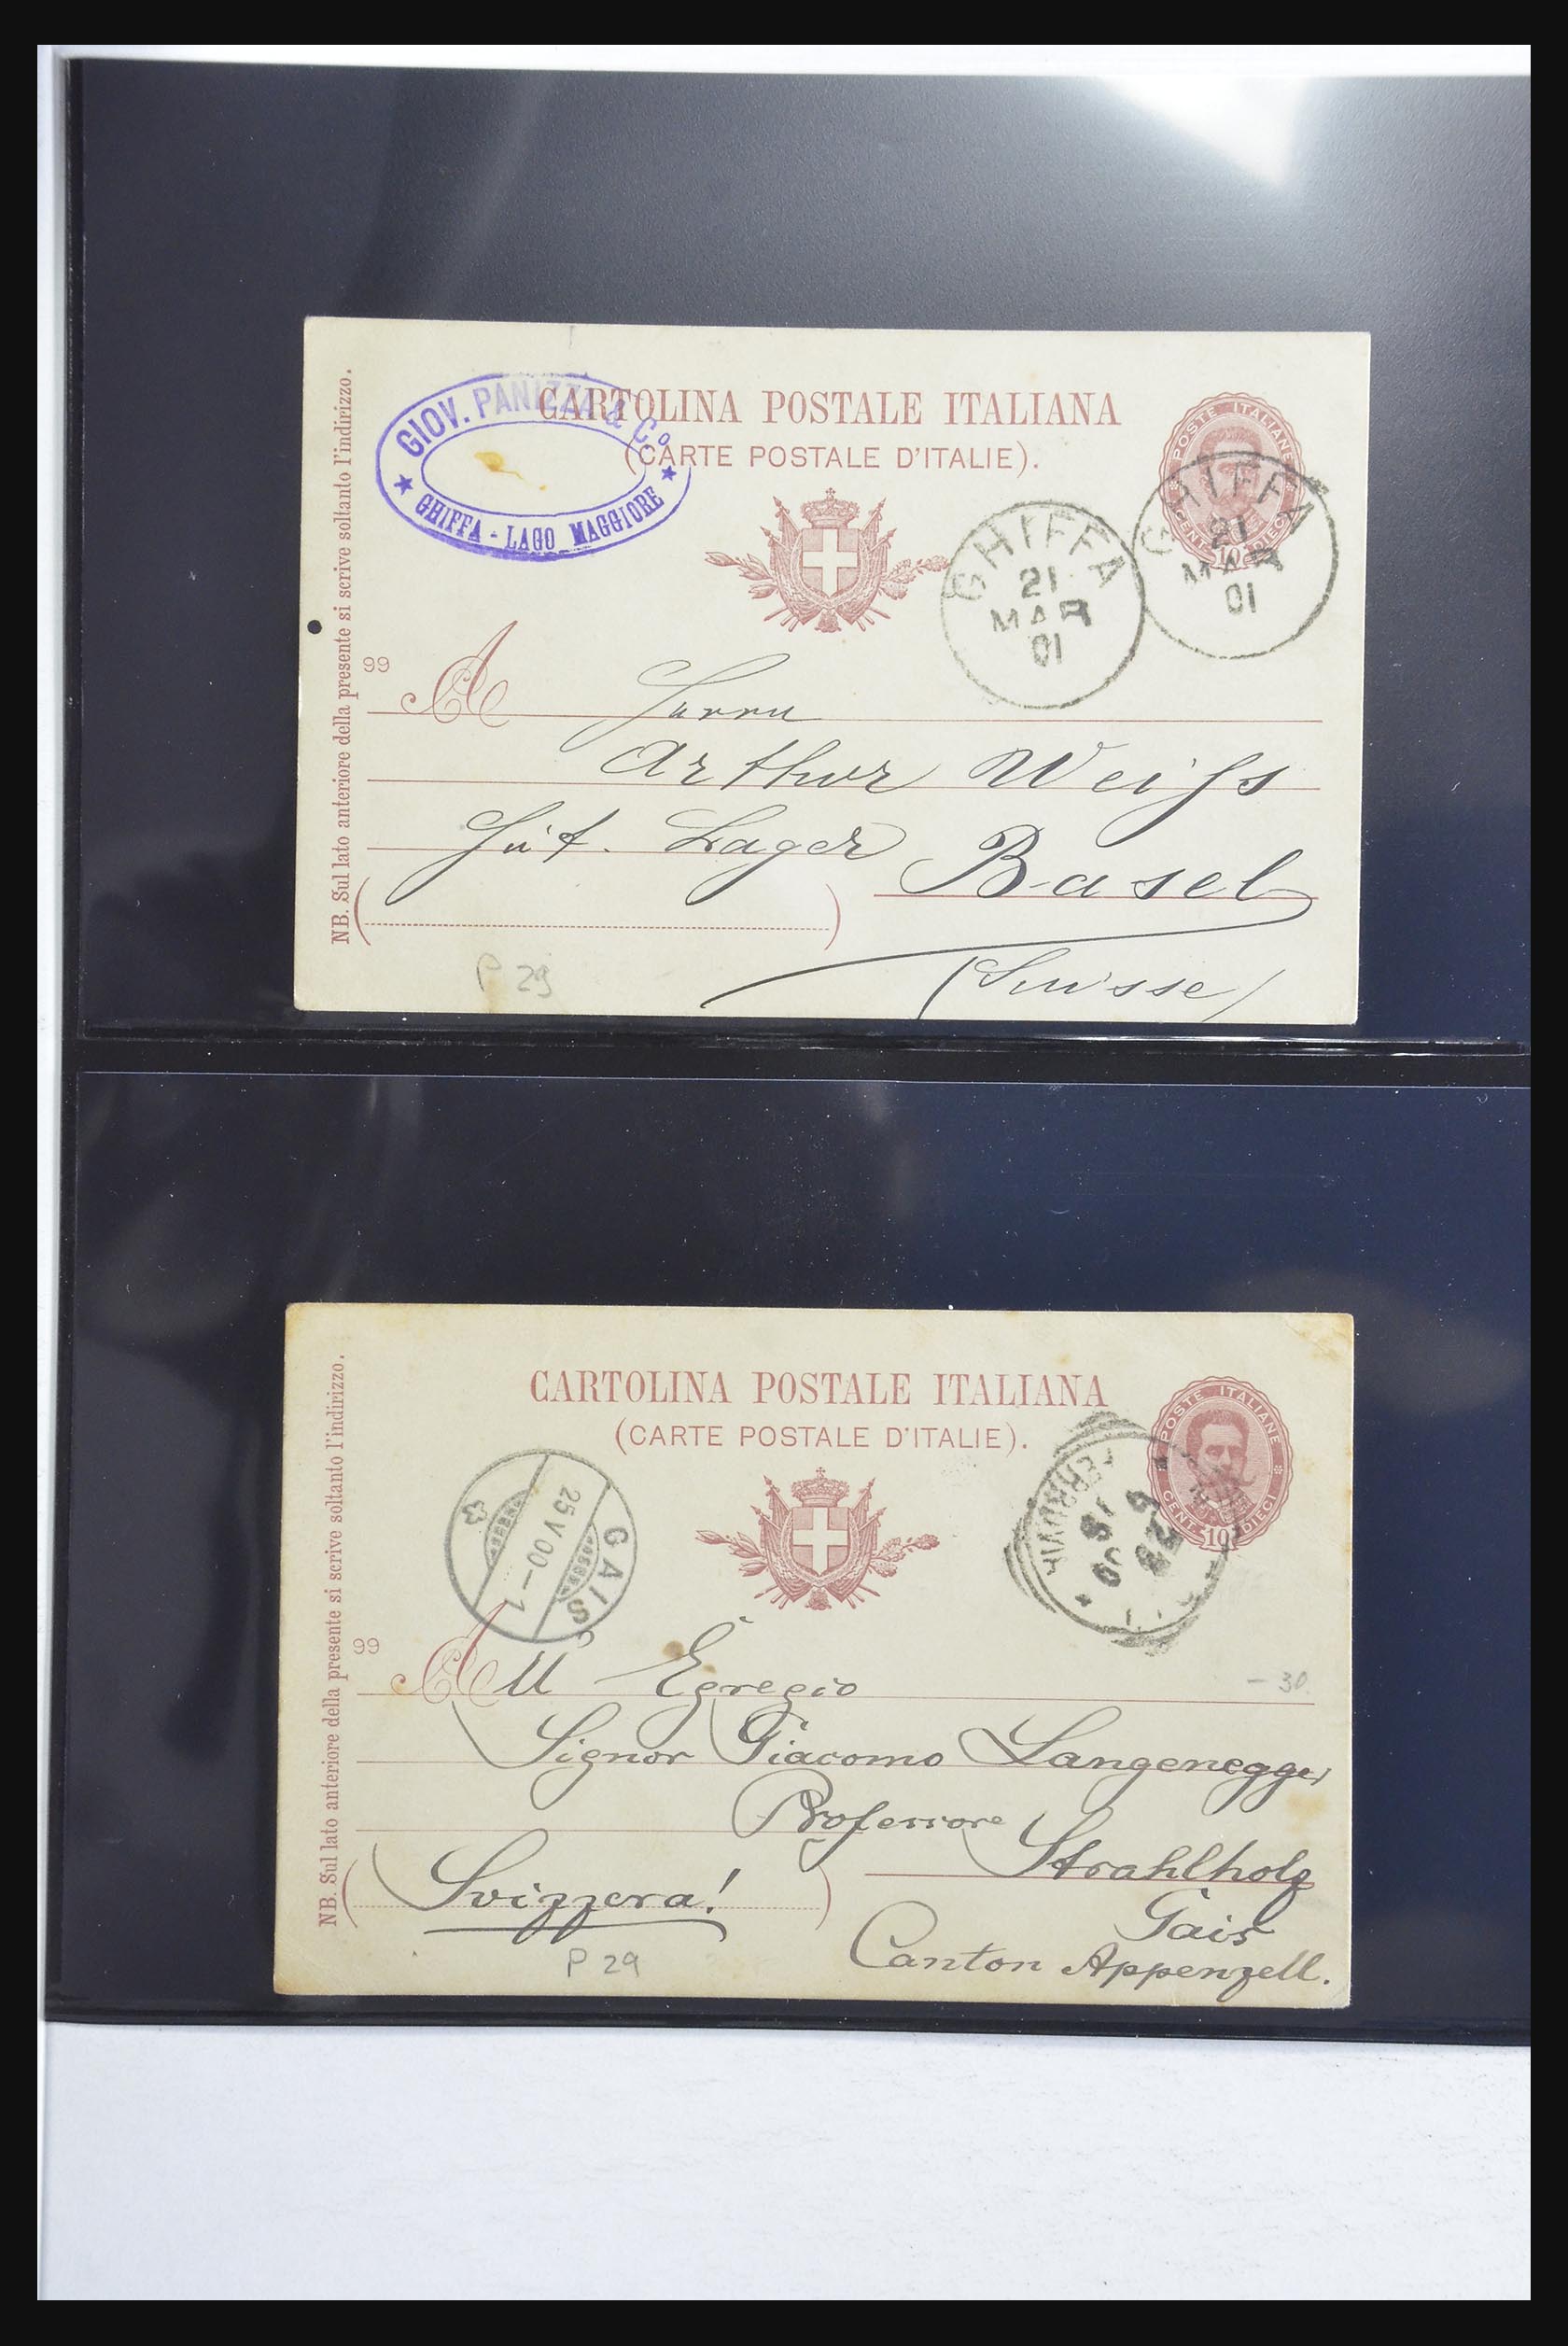 NB. Sul lato anteriore della presente si scrive soltanto l'indirizzo.
GIOV. PANIZZA & Co.
★ GHIFFA - LAGO MAGGIORE ★
CARTOLINA POSTALE ITALIANA
(CARTE POSTALE D'ITALIE).
POSTE ITALIANE
CENT. 10 DIECI
GHIFFA
21
MAR
01
GHIFFA
21
MAR
01
99
A Herrn
Arthur Weiss
Hüt. Lager Basel
(Suisse)
P 29
NB. Sul lato anteriore della presente si scrive soltanto l'indirizzo.
CARTOLINA POSTALE ITALIANA
(CARTE POSTALE D'ITALIE).
POSTE ITALIANE
CENT. 10 DIECI
GAIS
25 V 00 – 1
99
All' Egregio
– 30
Signor Giacomo Langenegger
Professore
Strahlholz
Svizzera!
Gais
Canton Appenzell.
P 29